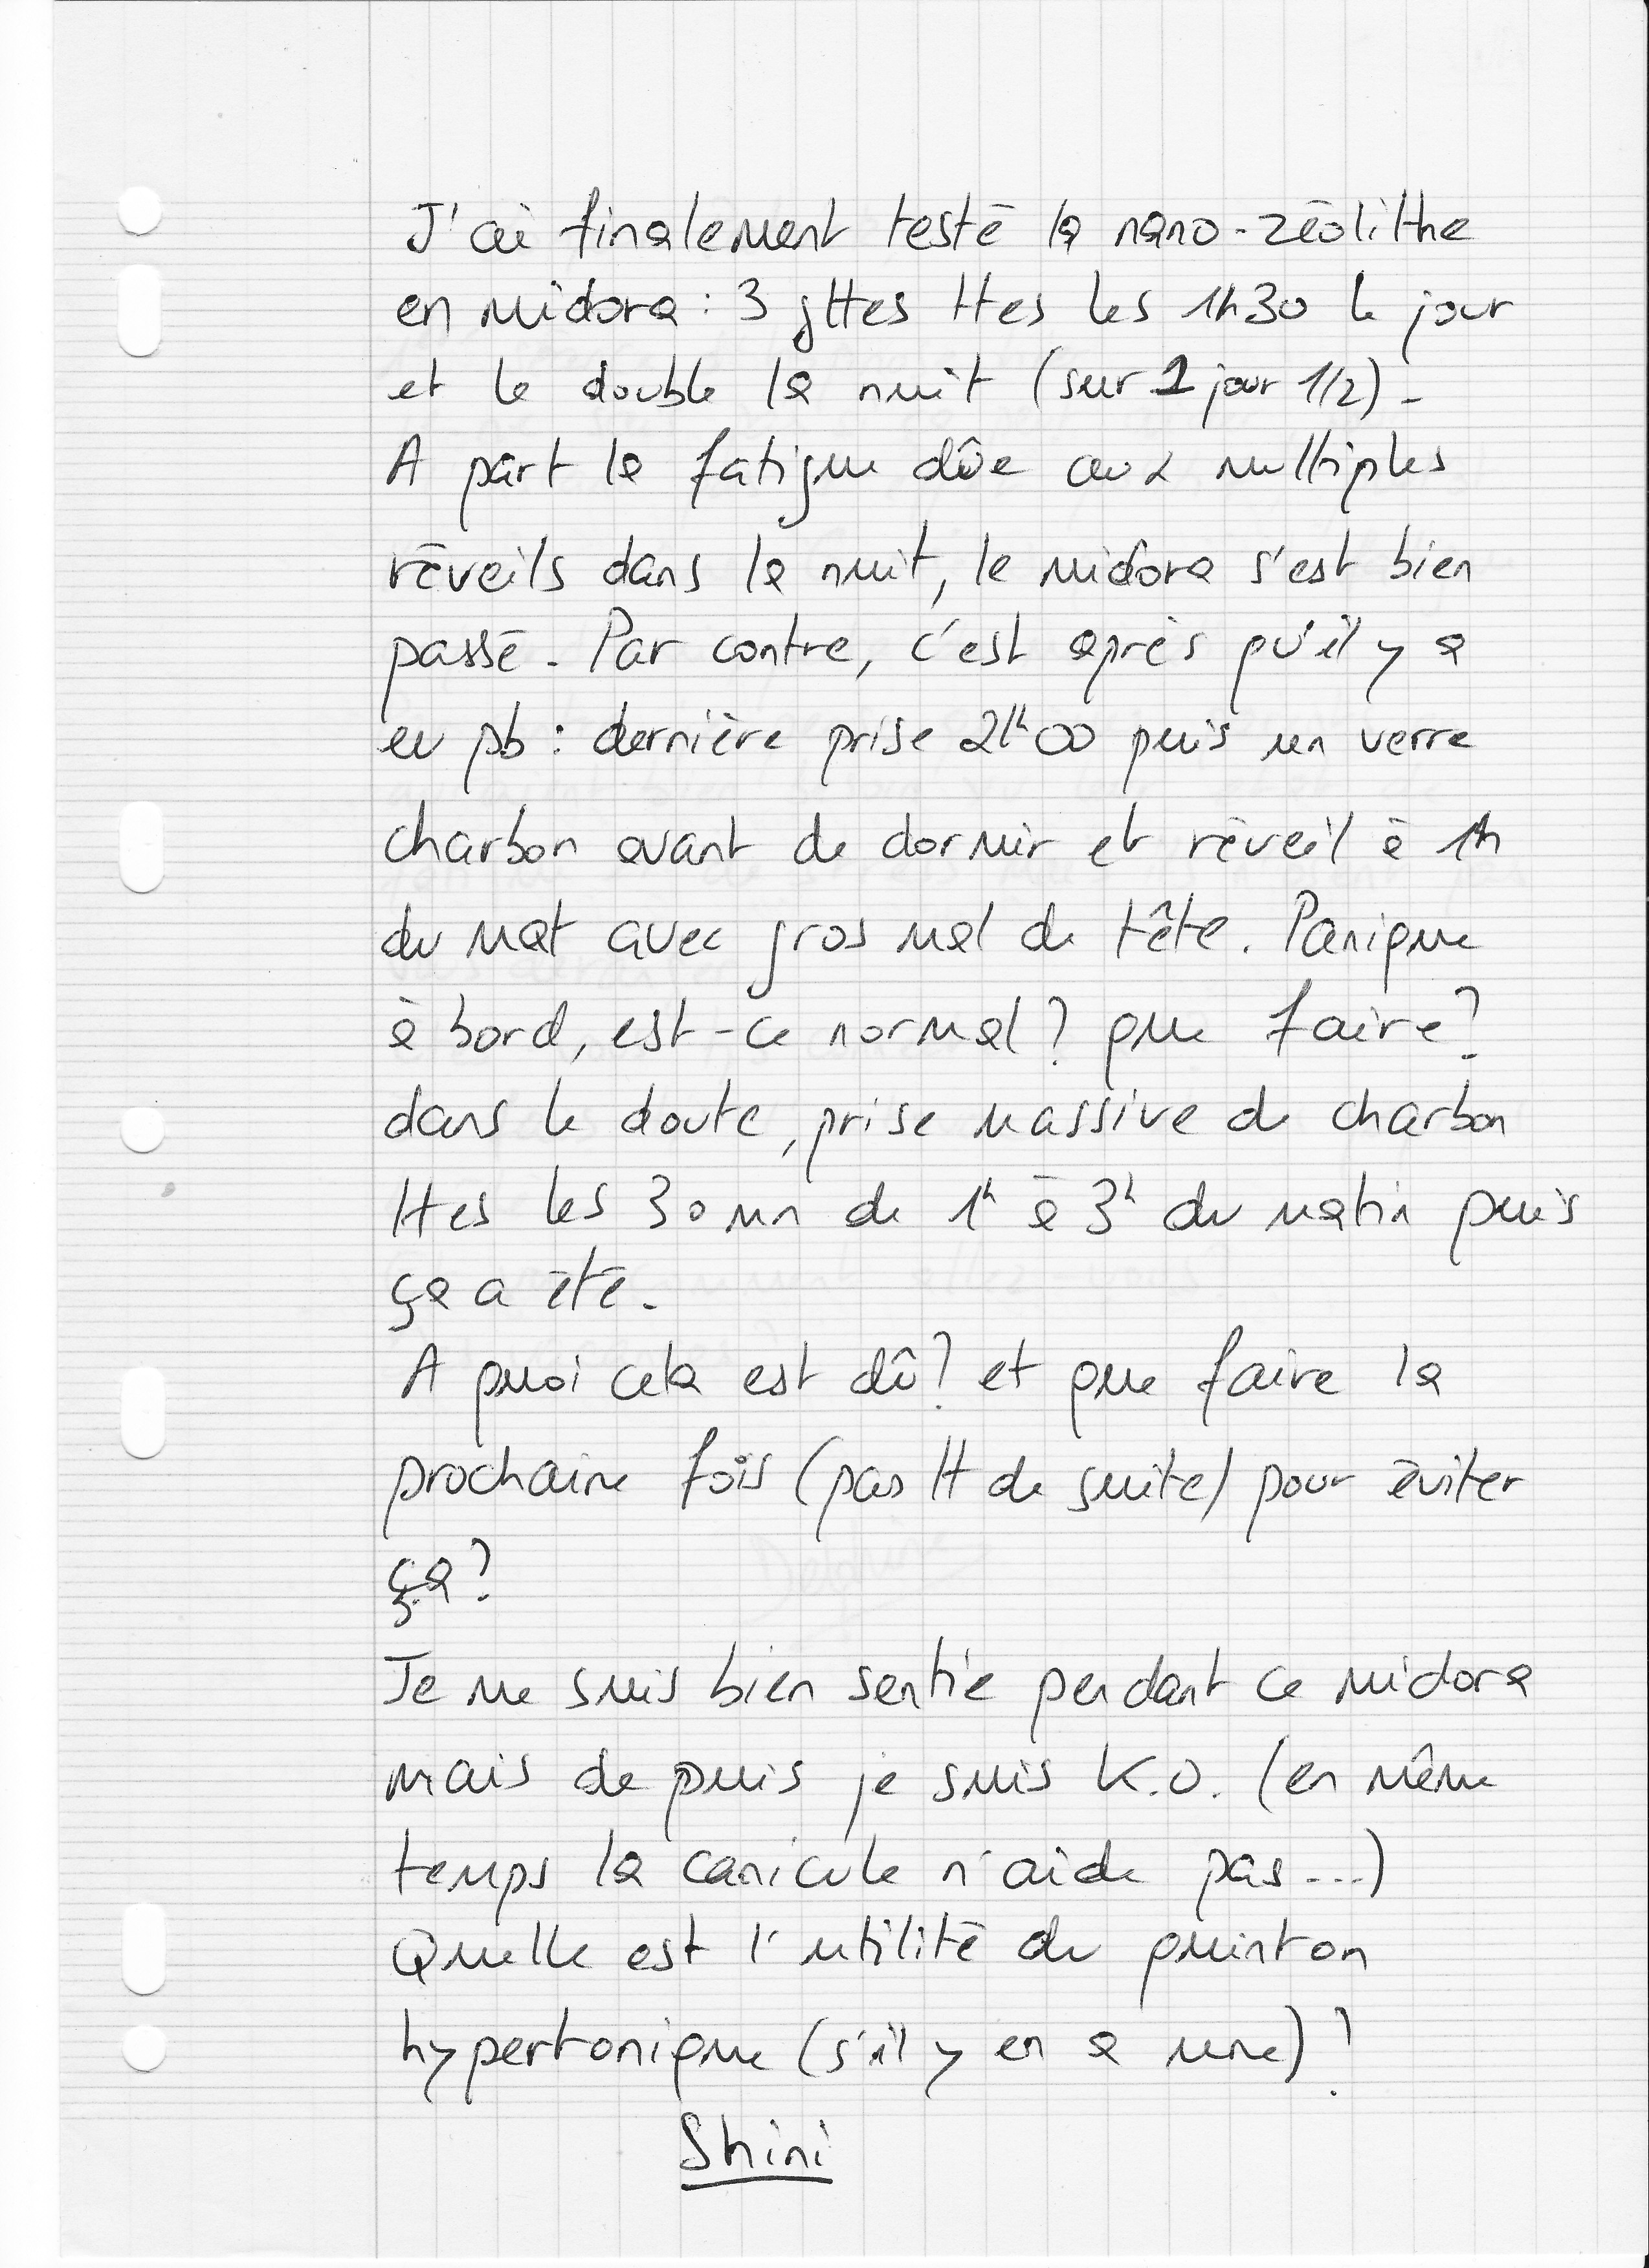 J'ai finalement testé la nano-zéolithe
en midora : 3 gttes ttes les 1h30 le jour
et le double la nuit (sur 1 jour 1/2) -
A part la fatigue dûe aux multiples
réveils dans la nuit, le midora s'est bien
passé. Par contre, c'est après qu'il y a
eu pb : dernière prise 21h00 puis un verre
charbon avant de dormir et réveil à 1h
du mat avec gros mal de tête. Panique
à bord, est-ce normal ? que faire ?
dans le doute, prise massive de charbon
ttes les 30 mn de 1h à 3h du matin puis
ça a été.
A quoi cela est dû ? et que faire la
prochaine fois (pas tt de suite) pour éviter
ça ?
Je me suis bien sentie pendant ce midora
mais depuis je suis K.O. (en même
temps la canicule n'aide pas...)
Quelle est l'utilité du quinton
hypertonique (s'il y en a une) ?
Shini